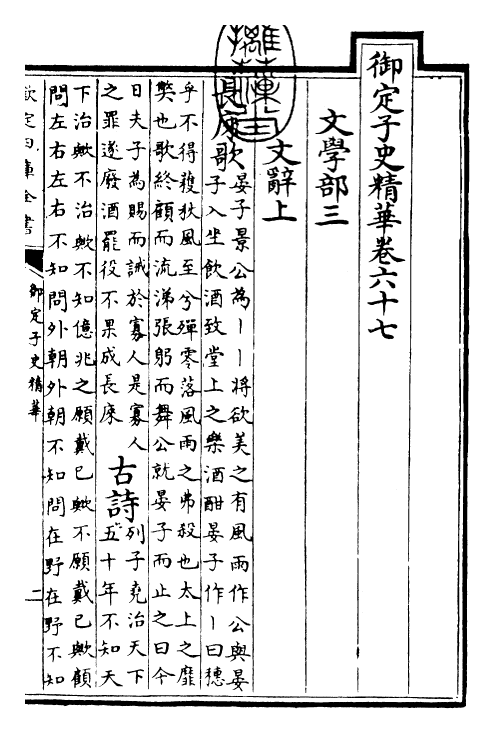 御定子史精華卷六十七
文學部三
文辭上
長庲歌
晏子景公為丨丨將欲美之有風雨作公與晏
子入坐飲酒致堂上之樂酒酣晏子作丨曰穗
乎不得穫秋風至兮殫零落風雨之弗殺也太上之靡
弊也歌終顧而流涕張躬而舞公就晏子而止之曰今
日夫子為賜而誡於寡人是寡人
之罪遂廢酒罷役不果成長庲
古詩
列子堯治天下
五十年不知天
下治歟不治歟不知億兆之願戴已歟不願戴已歟顧
問左右左右不知問外朝外朝不知問在野在野不知
欽定四庫全書
御定子史精華
二